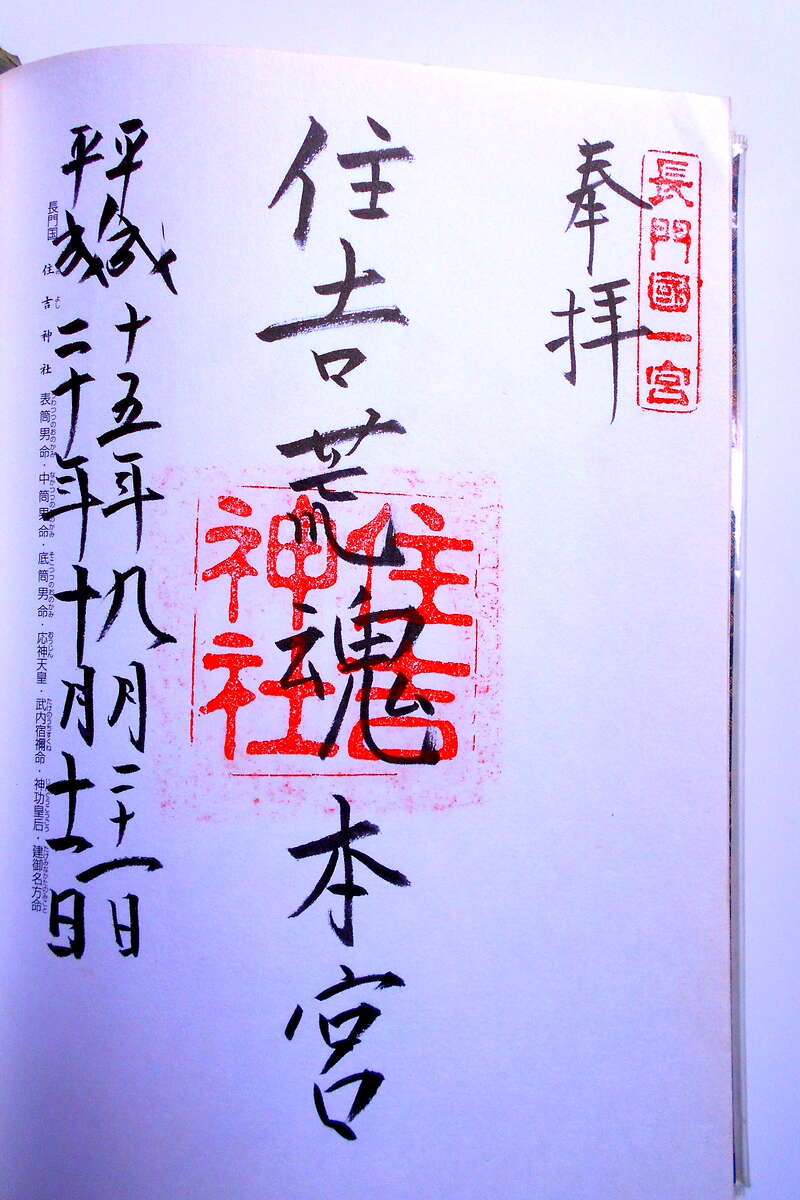 長門國一宮
奉拝
住吉荒魂本宮
住吉
神社
平成十五年九月二十一日
平成二十年十月十二日
長門国 住吉神社 表筒男命・中筒男命・底筒男命・応神天皇・武内宿禰命・神功皇后・建御名方命